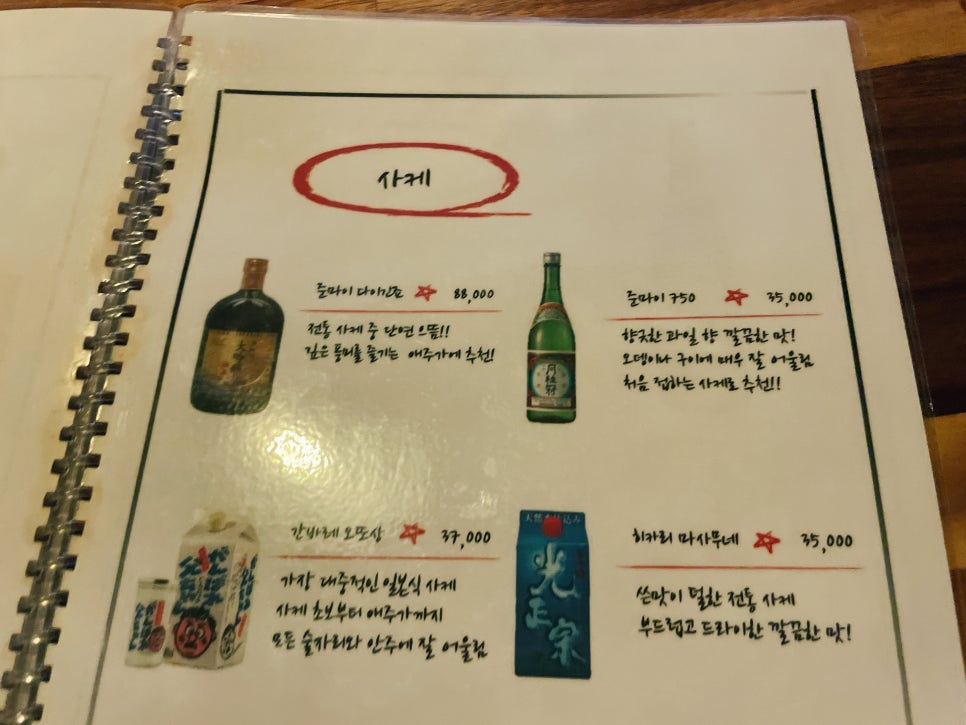 사케
준마이 다이긴죠 88,000
전통 사케 중 단연 으뜸!!
깊은 풍미를 즐기는 애주가에 추천!
大吟醸
준마이 750 35,000
향긋한 과일 향 깔끔한 맛!
오뎅이나 구이에 매우 잘 어울림
처음 접하는 사케로 추천!!
月桂冠
간바레 오또상 37,000
가장 대중적인 일본식 사케
사케 초보부터 애주가까지
모든 술자리와 안주에 잘 어울림
히카리 마사무네 35,000
쓴맛이 덜한 전통 사케
부드럽고 드라이한 깔끔한 맛!
光正宗